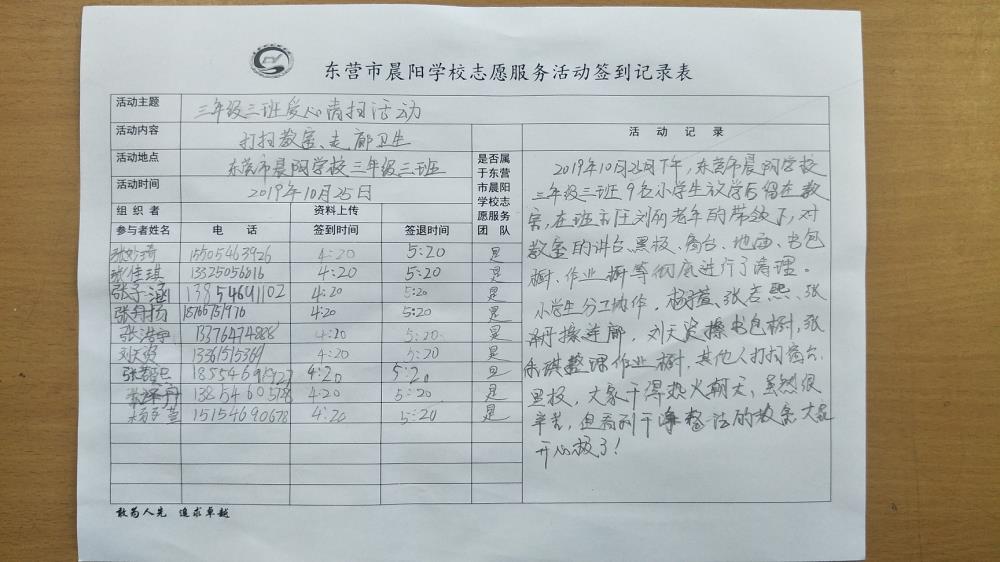 东营市晨阳学校志愿服务活动签到记录表
活动主题 三年级三班爱心清扫活动
活动内容 打扫教室、走廊卫生
活动地点 东营市晨阳学校三年级三班
活动时间 2019年10月25日
是否属于东营市晨阳学校志愿服务团队
组织者 资料上传
参与者姓名 电话 签到时间 签退时间
15505463926 4:20 5:20 是
张佳琪 13325056016 4:20 5:20 是
张子涵 13854691102 4:20 5:20 是
张舟扬 4:20 5:20 是
张浩宇 13764774888 4:20 5:20 是
刘天姿 13361515369 4:20 5:20 是
4:20 5:20 是
13854660578 4:20 5:20 是
15154690678 4:20 5:20 是
活动记录
2019年10月25日下午,东营市晨阳学校
三年级三班9名小学生放学后留在教
室,在班主任刘丽老年的带领下,对
教室的讲台、黑板、窗台、地面、书包
橱、作业橱等彻底进行了清理。
小学生分工协作,张若熙、张
擦走廊,刘天姿擦书包橱,张
琪整理作业橱,其他人打扫窗台
黑板,大家干得热火朝天,虽然很
辛苦,但看到干净整洁的教室大家
开心极了!
敢为人先 追求卓越